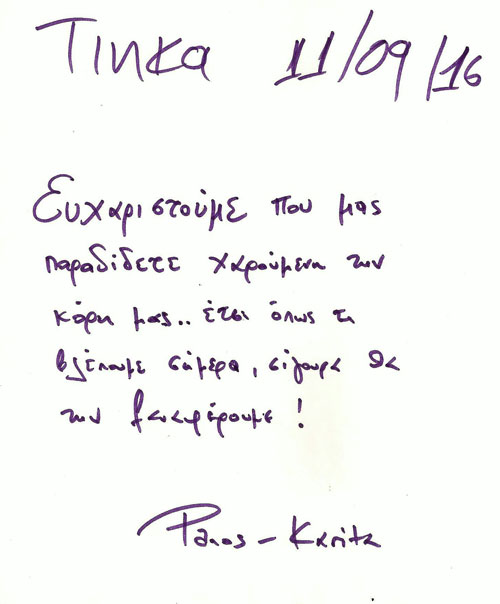 Τινκα 11/09/16
Ευχαριστούμε που μας
παραδίδετε χαρούμενη την
κόρη μας.. έτσι όπως τη
βλέπουμε σήμερα, σίγουρα θα
την ξαναφέρουμε!
Panos - Καπίτα